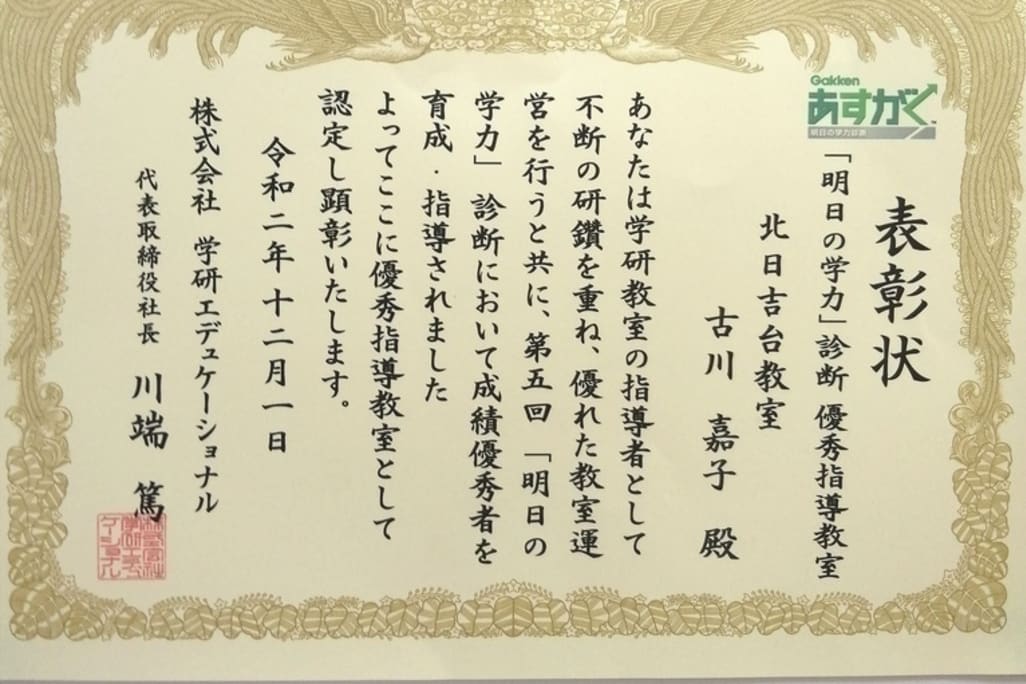 Gakken
あすがく
明日の学力診断
表彰状
「明日の学力」診断 優秀指導教室
北日吉台教室
古川 嘉子 殿
あなたは学研教室の指導者として
不断の研鑽を重ね、優れた教室運
営を行うと共に、第五回「明日の
学力」診断において成績優秀者を
育成・指導されました
よってここに優秀指導教室として
認定し顕彰いたします。
令和二年十二月一日
株式会社 学研エデュケーショナル
代表取締役社長 川端 篤